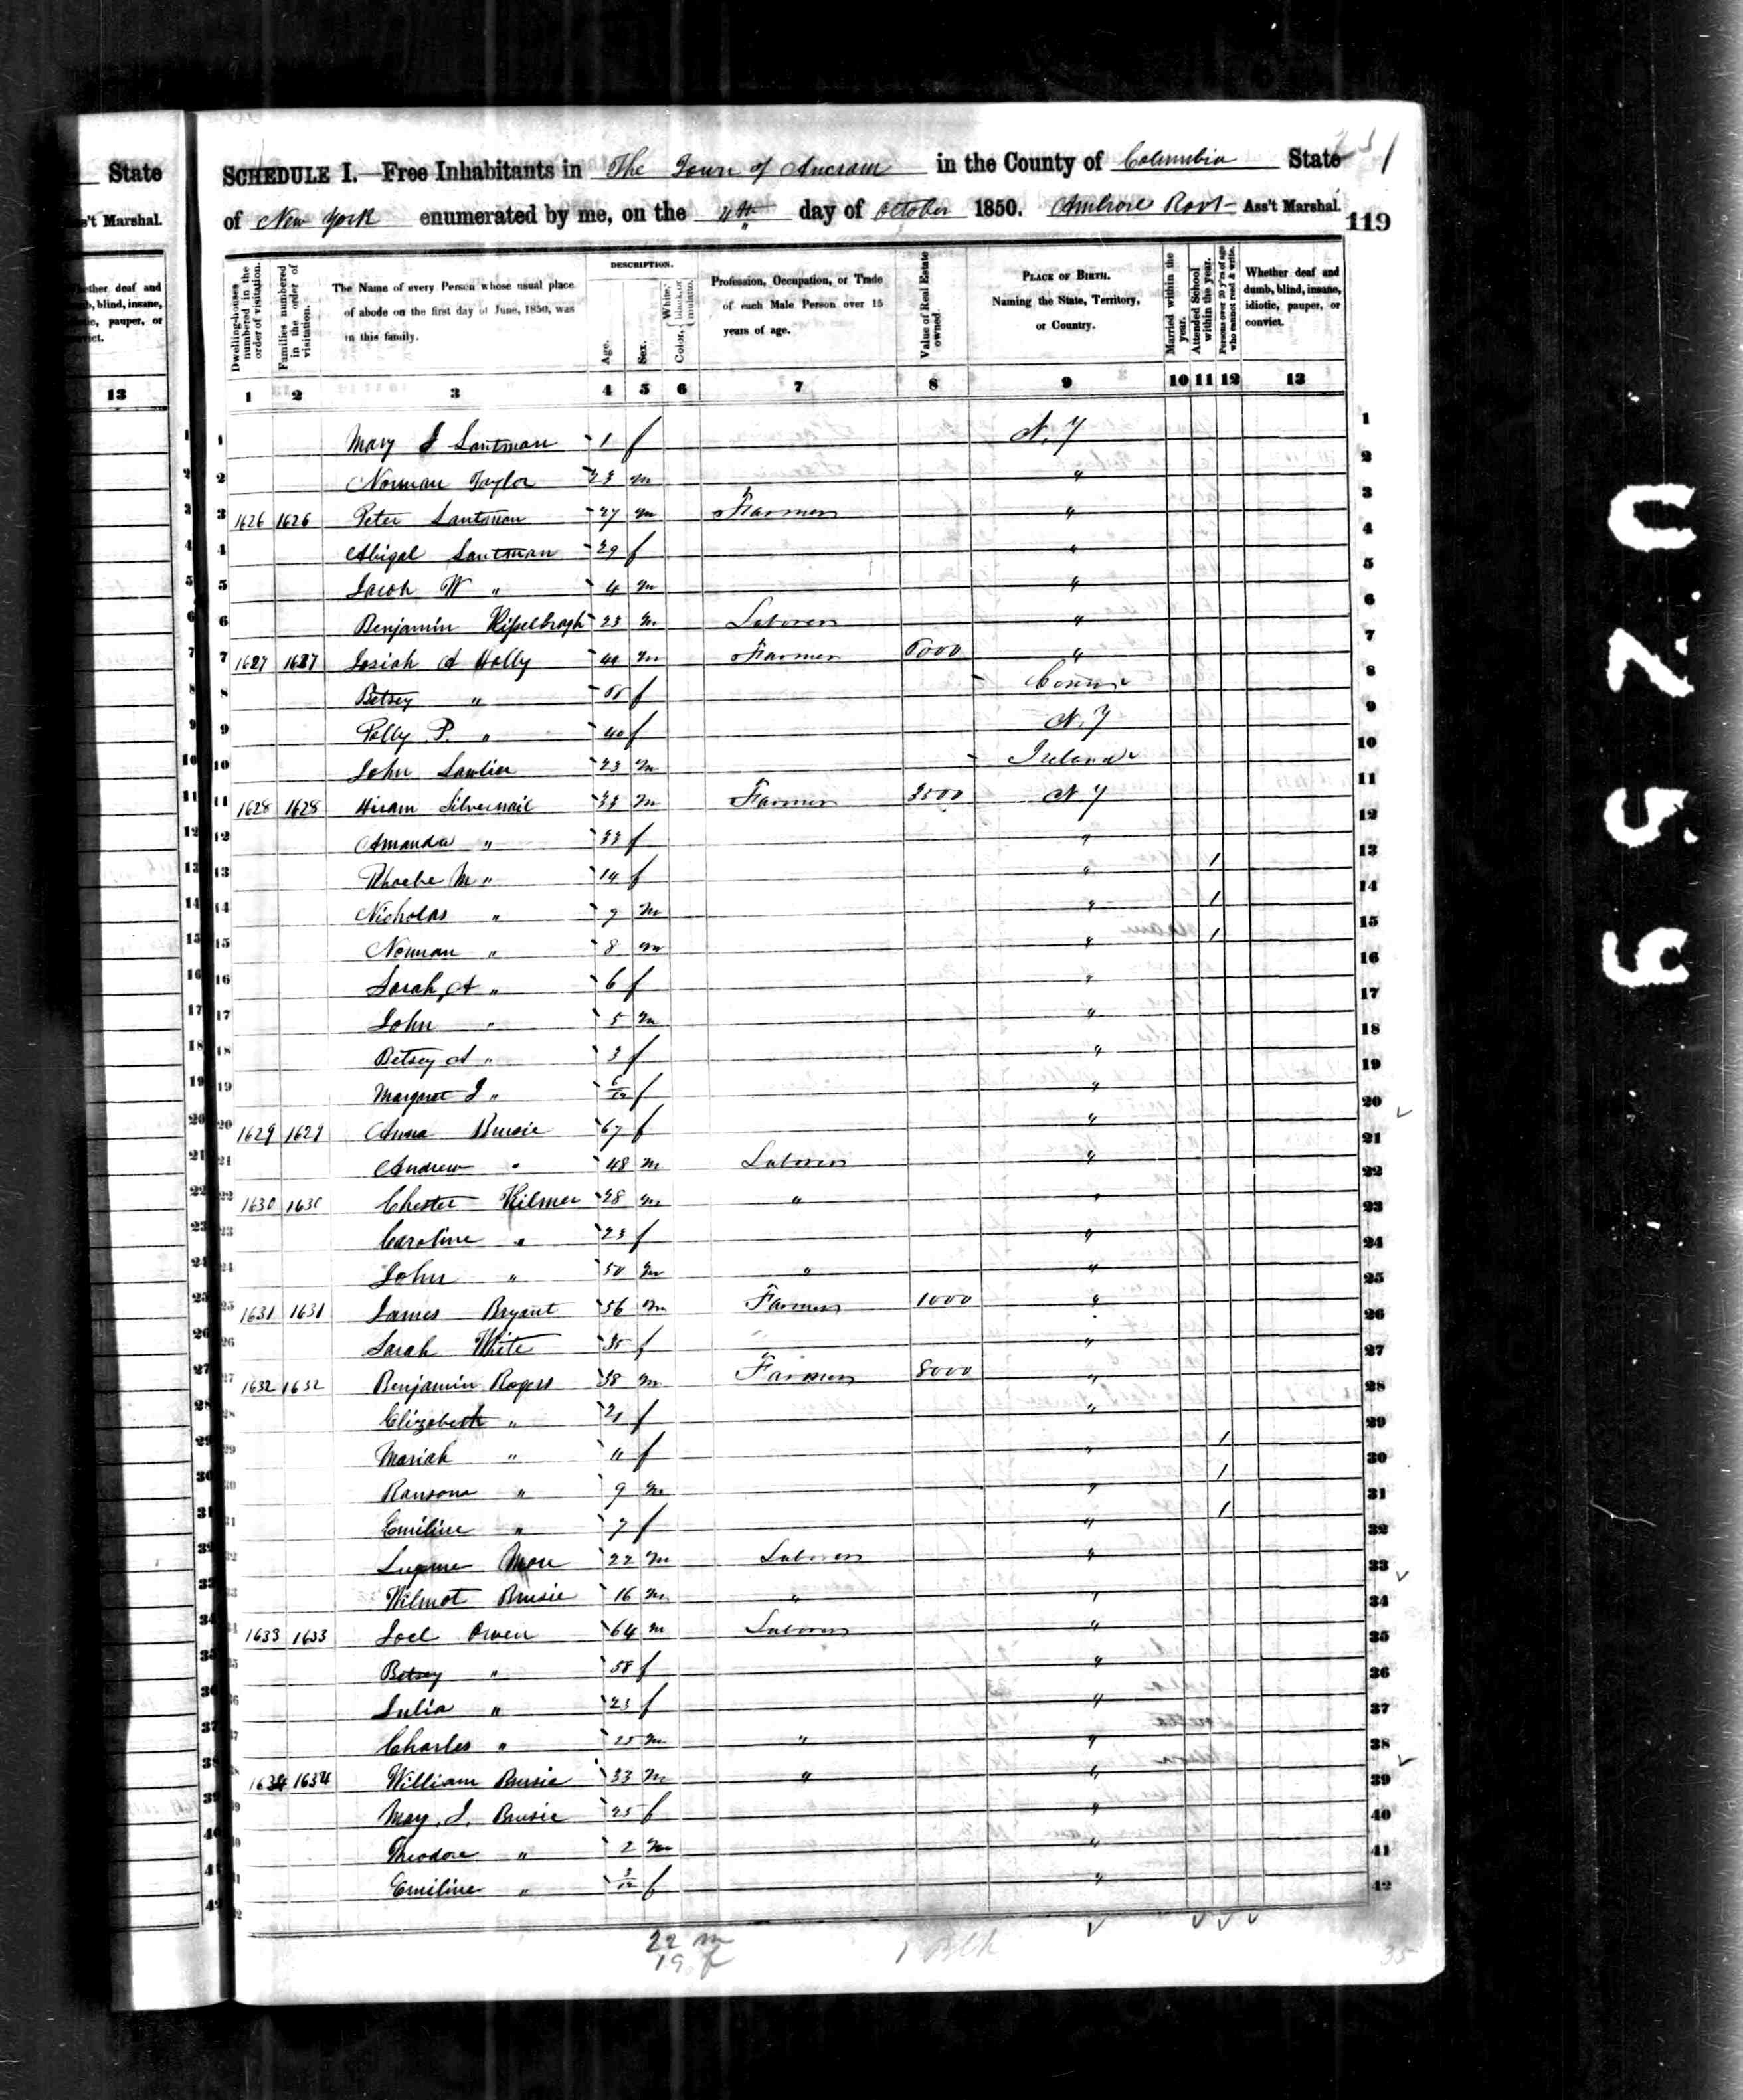 State
SCHEDULE I. Free Inhabitants in The Town of Ancram in the County of Columbia State
't Marshal.
of New York enumerated by me, on the 4th day of October 1850. Ambrose Root Ass't Marshal.
119
Dwelling-houses numbered in the order of visitation.
Families numbered in the order of visitation.
The Name of every Person whose usual place of abode on the first day of June, 1850, was in this family.
DESCRIPTION.
Age.
Sex.
Color, { White, black, or mulatto.
Profession, Occupation, or Trade of each Male Person over 15 years of age.
Value of Real Estate owned.
PLACE OF BIRTH. Naming the State, Territory, or Country.
Married within the year.
Attended School within the year.
Persons over 20 y'rs of age who cannot read & write.
Whether deaf and dumb, blind, insane, idiotic, pauper, or convict.
13 1 2 3 4 5 6 7 8 9 10 11 12 13
1 Mary J Lantman 1 f N.Y 1
2 Norman Taylor 23 m " 2
3 1626 1626 Peter Lantman 27 m Farmer " 3
4 Abigal Lantman 29 f " 4
5 Jacob W " 4 m " 5
6 Benjamin 23 m Laborer " 6
7 1627 1627 Josiah A Holly 44 m Farmer 6000 " 7
8 Betsey " f Conn 8
9 Polly P. " 40 f N.Y 9
10 John 23 m Ireland 10
11 1628 1628 Hiram Silvernail 33 m Farmer 3500 N.Y 11
12 Amanda " 33 f " 12
13 Phoebe M " 14 f " 1 13
14 Nicholas " 9 m " 1 14
15 Norman " 8 m " 1 15
16 Sarah A " 6 f " 16
17 John " 5 m " 17
18 Betsey A " 3 f " 18
19 Margaret J " 6/12 f " 19
20 1629 1629 Anna Brusie 67 f " 20
21 Andrew " 48 m Laborer " 21
22 1630 1630 Chester Kilmer 28 m " " 22
23 Caroline " 23 f " 23
24 John " 50 m " " 24
25 1631 1631 James Bryant 56 m Farmer 1000 " 25
26 Sarah White 35 f " 26
27 1632 1632 Benjamin Rogers 38 m Farmer 8000 " 27
28 Elizabeth " f " 28
29 Mariah " 11 f " 1 29
30 Ransom " 9 m " 1 30
31 Emiline " 7 f " 1 31
32 22 m Laborer " 32
33 Wilmot Brusie 16 m " " 33
34 1633 1633 Joel Owen 64 m Laborer " 34
35 Betsey " 58 f " 35
36 Julia " 23 f " 36
37 Charles " 25 m " " 37
38 1634 1634 William Brusie 33 m " " 38
39 May J. Brusie 25 f " 39
40 Theodore " 2 m " 40
41 Emiline " 3/12 f " 41
42 42
22 m
19 f
1 Blk
35
0259